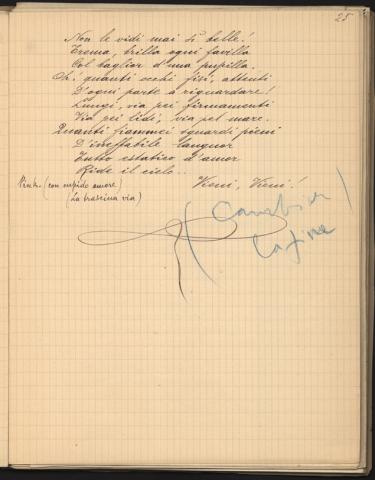 25
Non le vidi mai sì belle!
Trema, brilla ogni favilla
Col baglior d'una pupilla.
Oh! quanti occhi fisi, attenti
D'ogni parte a riguardare!
Lungi, via pei firmamenti
Via pei lidi, via pel mare.
Quanti fiammei sguardi pieni
D'ineffabile languor
Tutto estatico d'amor
Ride il cielo...
Pink. (con cupido amore) Vieni, Vieni!
(La trascina via)
(Cambiar
la fine)